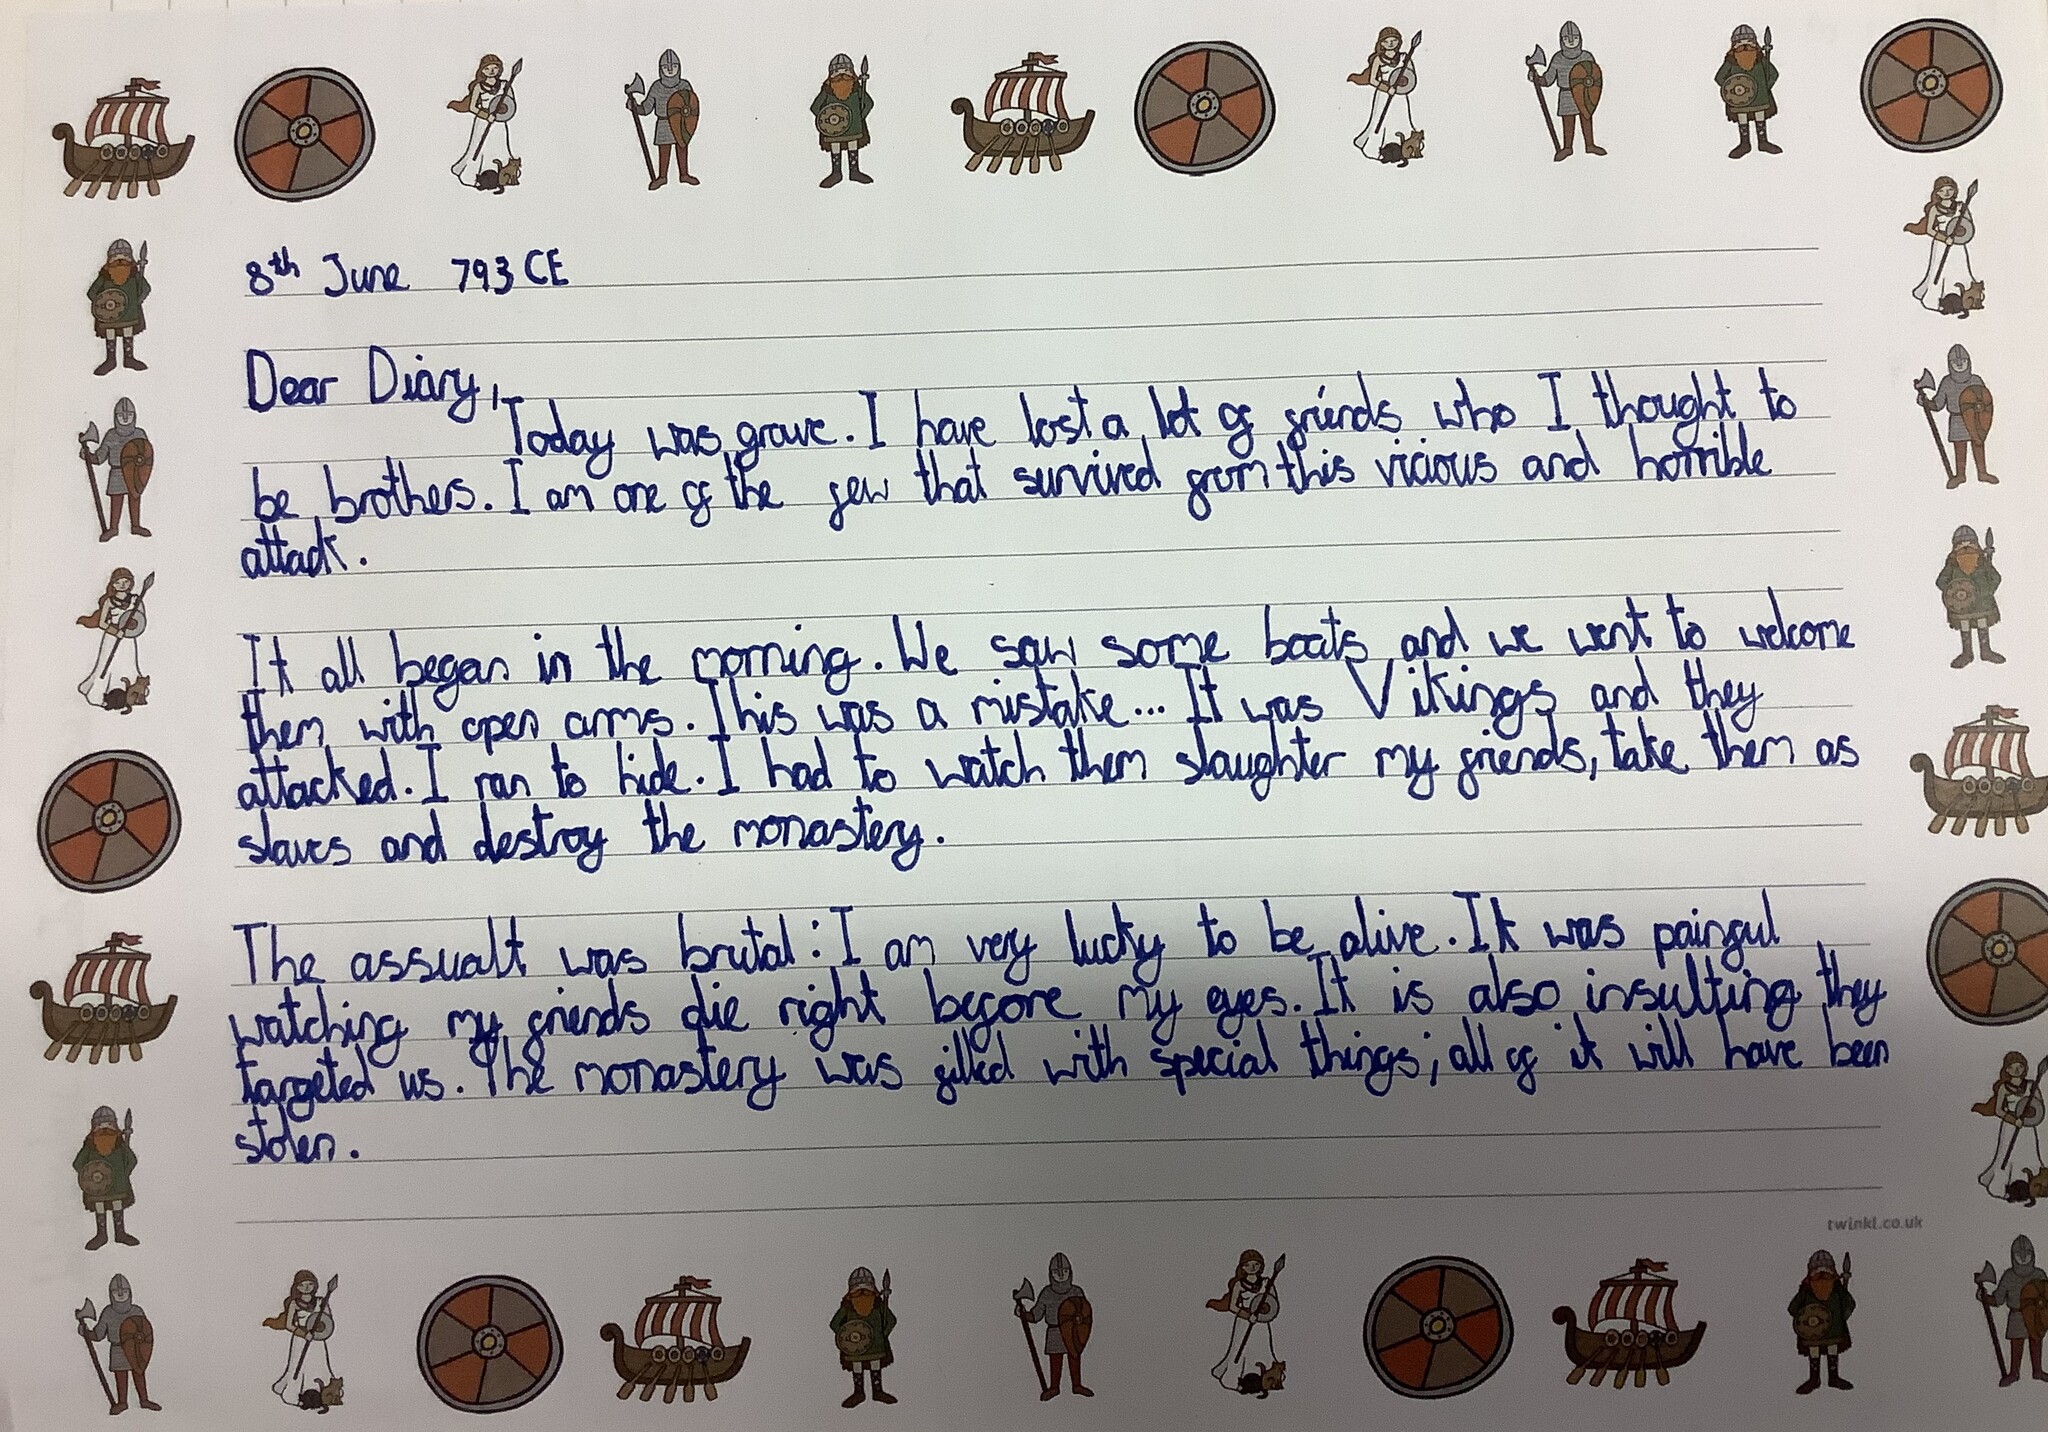 8th June 793 CE
Dear Diary,
Today was grave. I have lost a lot of friends who I thought to
be brothers. I am one of the few that survived from this vicious and horrible
attack.
It all began in the morning. We saw some boats and we went to welcome
them with open arms. This was a mistake... It was Vikings and they
attacked. I ran to hide. I had to watch them slaughter my friends, take them as
slaves and destroy the monastery.
The assualt was brutal: I am very lucky to be alive. It was painful
watching my friends die right before my eyes. It is also insulting they
targeted us. The monastery was filled with special things; all of it will have been
stolen.
twinkl.co.uk